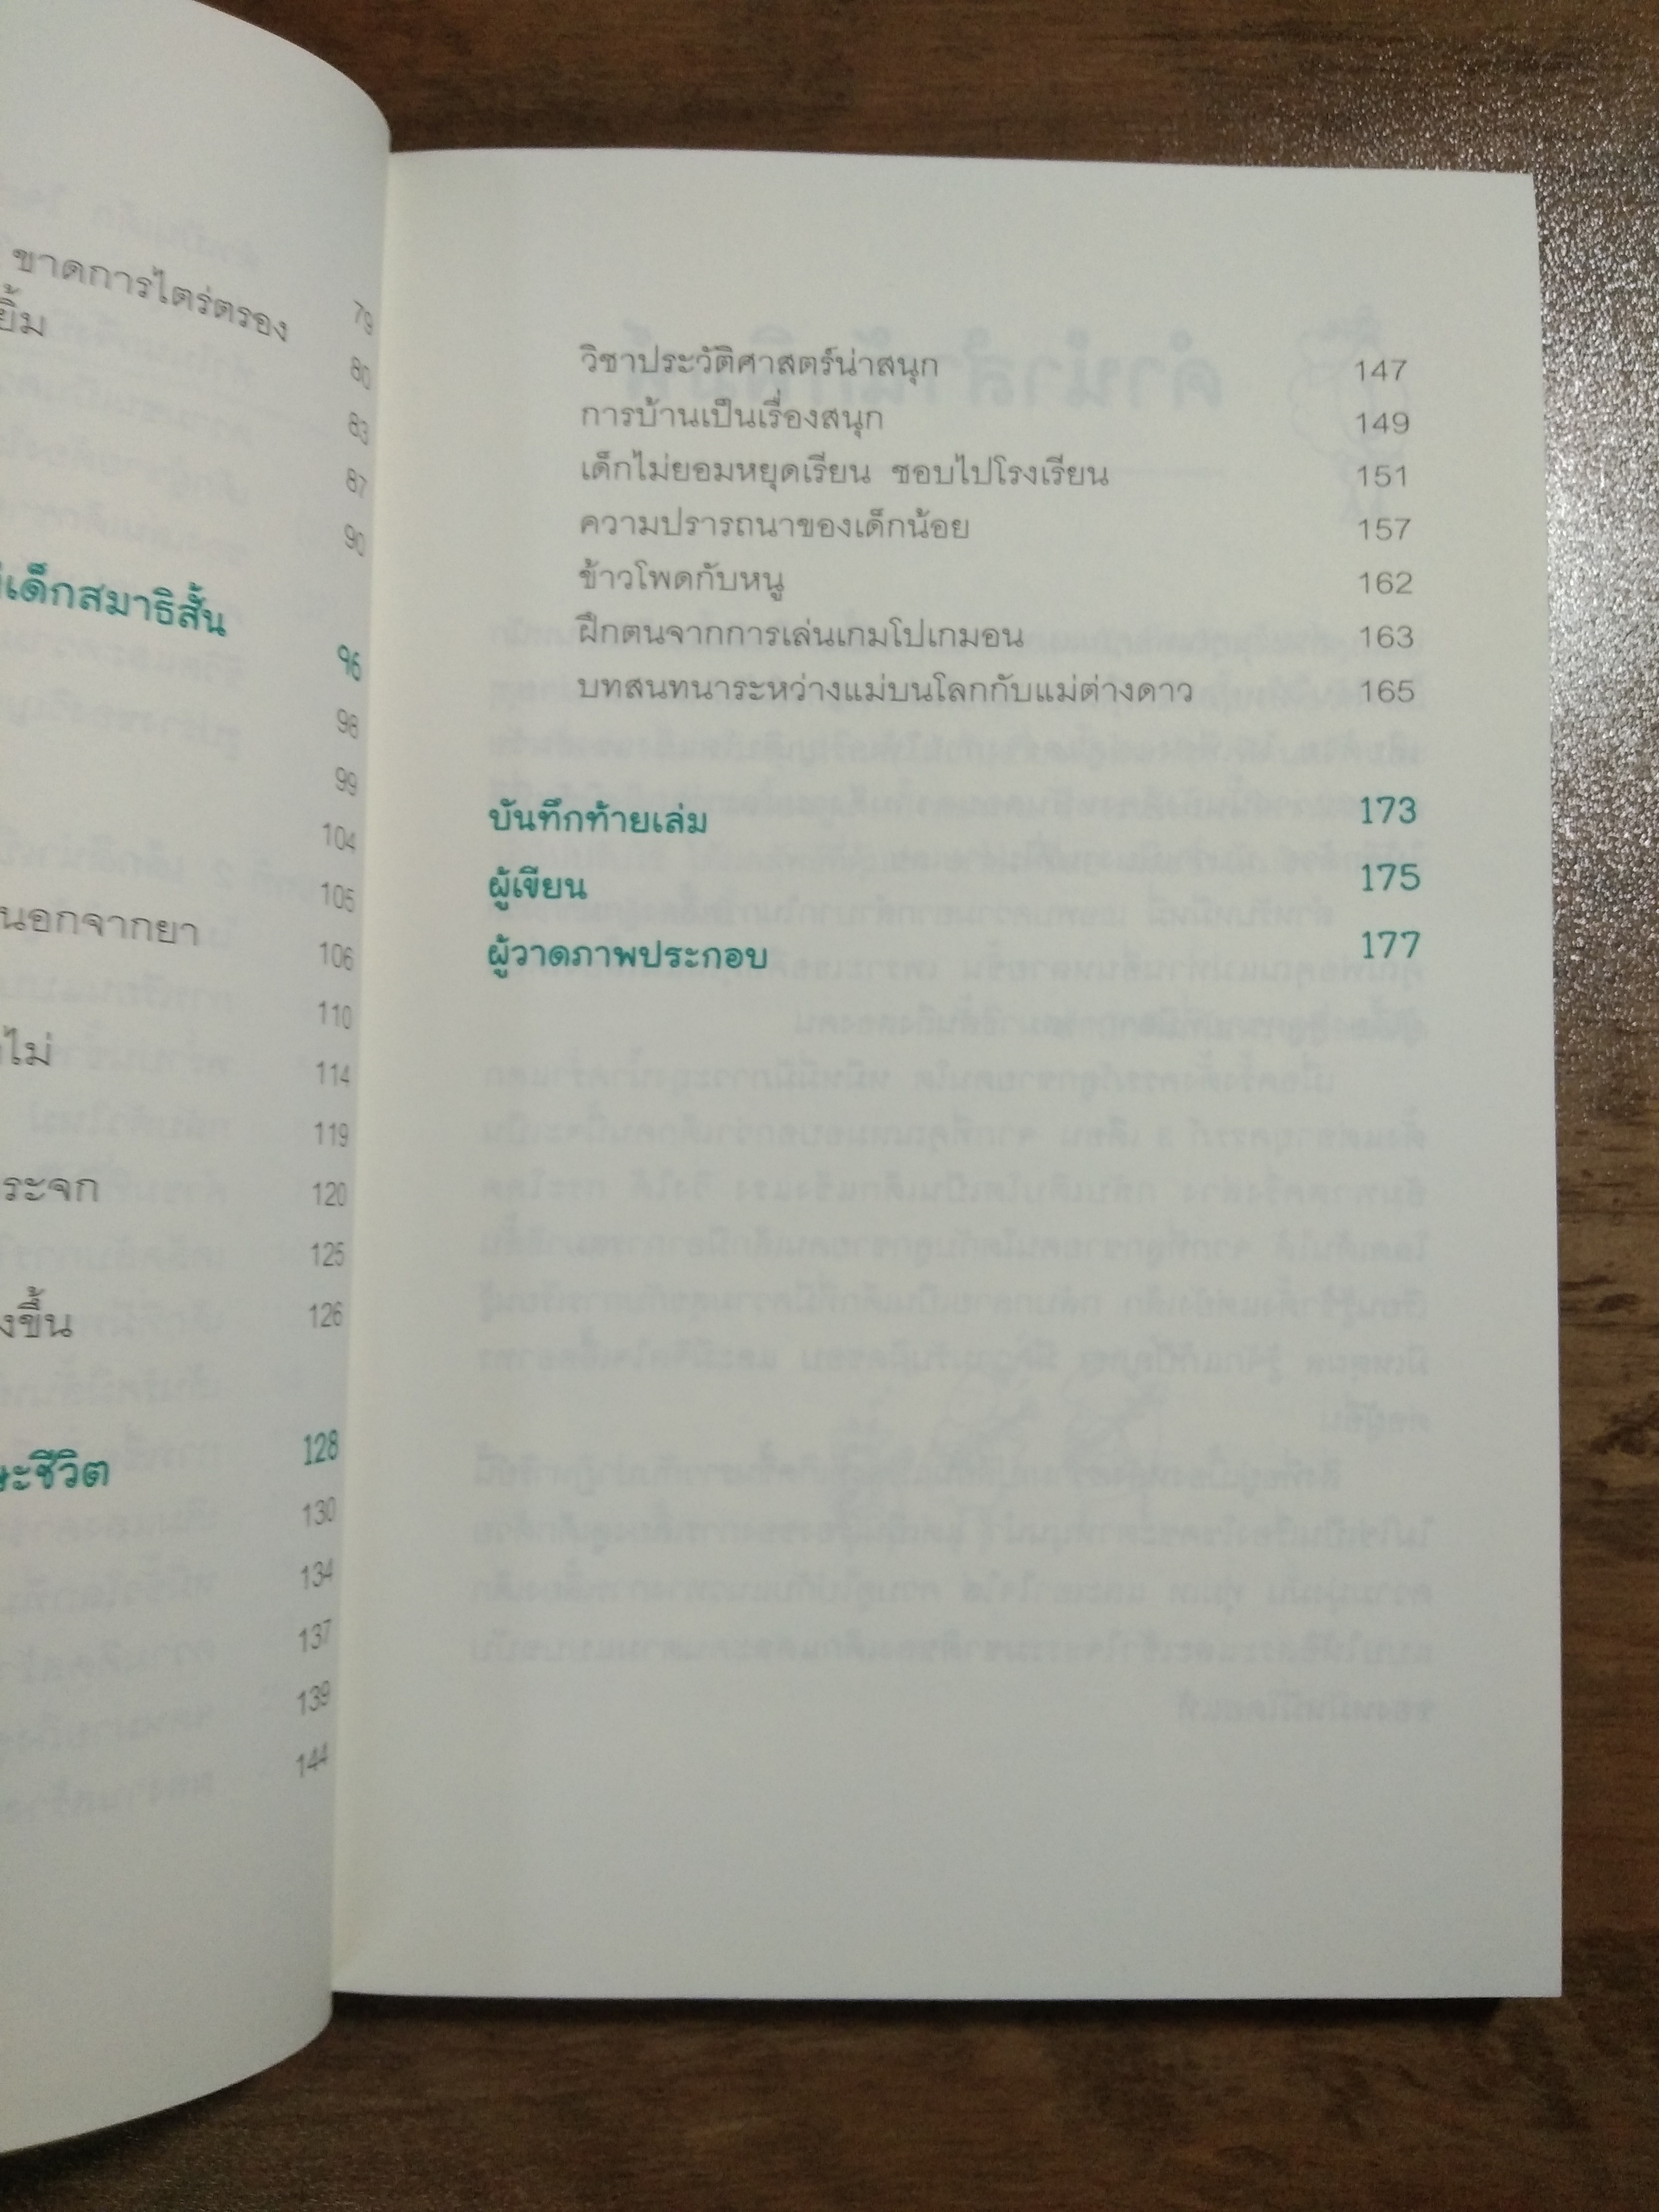 ขาดการไตร่ตรอง 79
ยิ้ม 80
83
87
90
เด็กสมาธิสั้น 96
98
99
104
105
นอกจากยา 106
110
ไม่ 114
119
ระจก 120
125
งขึ้น 126
ะชีวิต 128
130
134
137
139
144
วิชาประวัติศาสตร์น่าสนุก 147
การบ้านเป็นเรื่องสนุก 149
เด็กไม่ยอมหยุดเรียน ชอบไปโรงเรียน 151
ความปรารถนาของเด็กน้อย 157
ข้าวโพดกับหนู 162
ฝึกตนจากการเล่นเกมโปเกมอน 163
บทสนทนาระหว่างแม่บนโลกกับแม่ต่างดาว 165
บันทึกท้ายเล่ม 173
ผู้เขียน 175
ผู้วาดภาพประกอบ 177